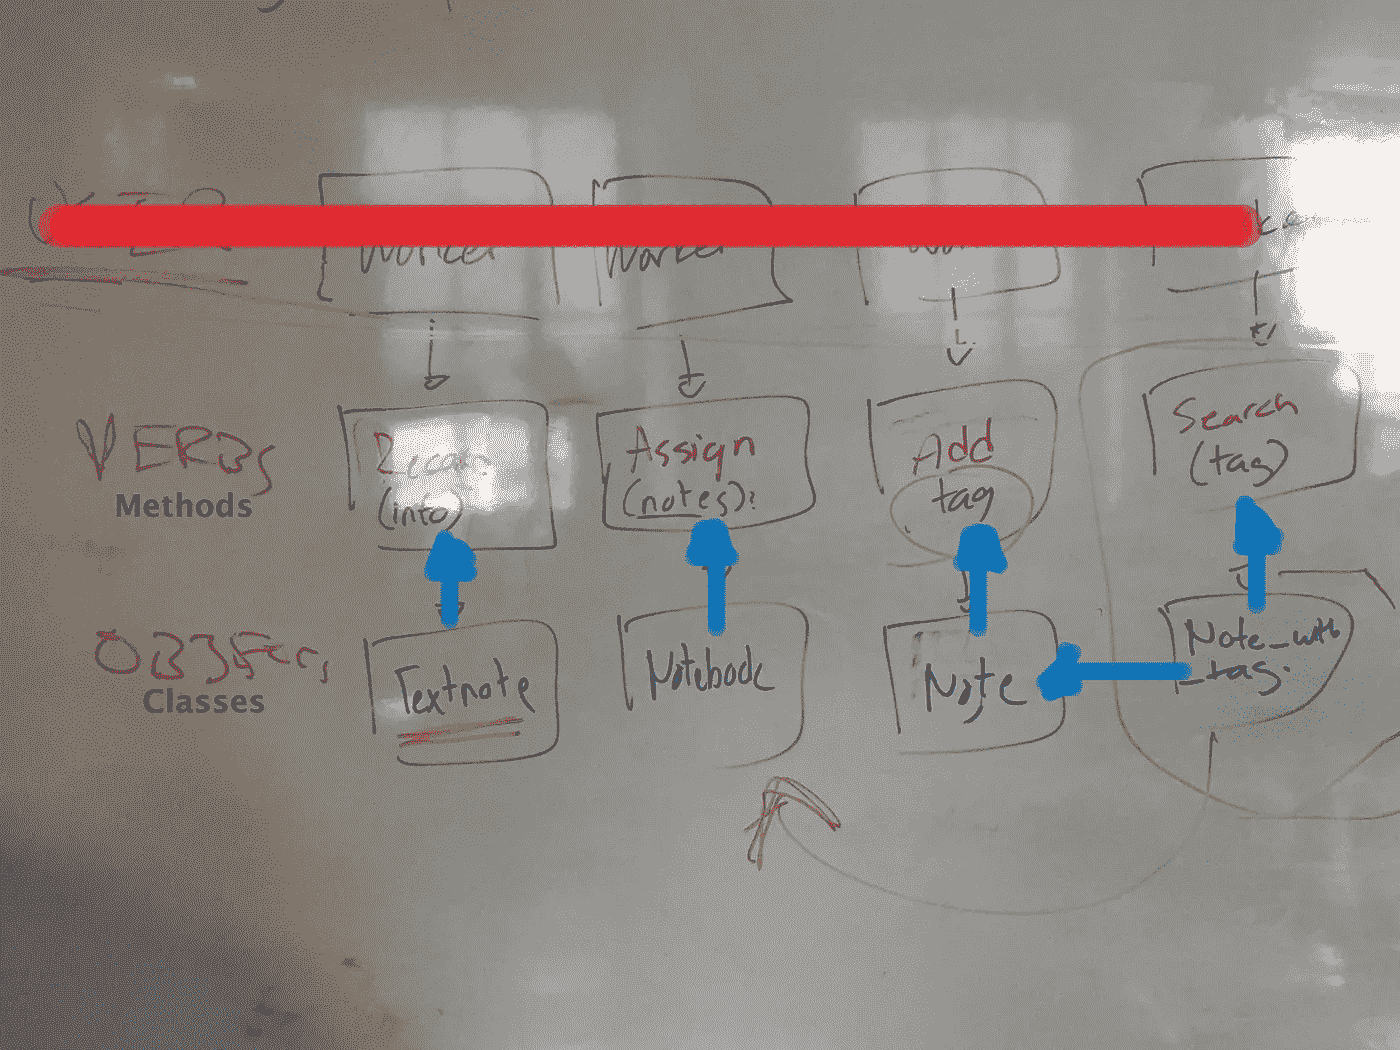 USER
Worker
Worker
VERBS
Methods
(info)
Assign
(notes)?
Add
tag
Search
(tag)
OBJECTS
Classes
Textnote
Notebook
Note
Note_with
_tag.